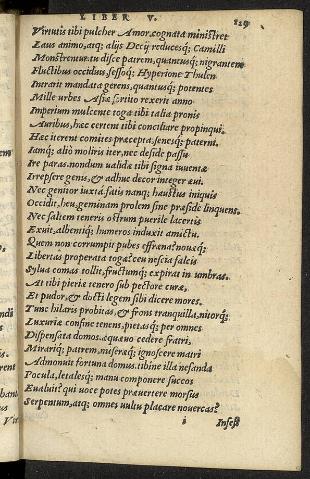 LIBER V. 129
Virtutis tibi pulcher Amor, cognata ministret
Laus animo, atq; alijs Decij reducesq; Camilli
Monstrentur. tu disce patrem, quantusq; nigrantem
Fluctibus occiduis, fessoq; Hyperione Thulen
Intrarit mandata gerens, quantusq; potentes
Mille urbes Asiæ sortito rexerit anno
Imperium mulcente toga. tibi talia pronis
Auribus, hæc certent tibi conciliare propinqui.
Hæc iterent comites præcepta, senesq; paterni.
Iamq; aliò moliris iter, nec deside passu
Ire paras. nondum ualidæ tibi signa iuuentæ
Irrepsere genis, & adhuc decor integer æui.
Nec genitor iuxta. fatis nanq; haustus iniquis
Occidit, heu, geminam prolem sine præside linquens.
Nec saltem teneris ostrum puerile lacertis
Exuit, albentiq; humeros induxit amictu.
Quem non corrumpit pubes effrena? nouæq;
Libertas properata togæ? ceu nescia falcis
Sylua comas tollit, fructumq; expirat in umbras.
At tibi pieriæ tenero sub pectore curæ,
Et pudor, & docti legem sibi dicere mores.
Tunc hilaris probitas, & frons tranquilla, nitorq;
Luxuriæ confine tenens, pietasq; per omnes
Dispensata domos. æquæuo cedere fratri,
Mirariq; patrem, miseræq; ignoscere matri
Admonuit fortuna domus. tibine illa nefanda
Pocula, letalesq; manu componere succos
Eualuit? qui uoce potes præuertere morsus
Serpentum, atq; omnes uultu placare nouercas?
i Infest